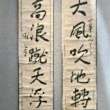 大風吹地轉
高浪蹴天浮